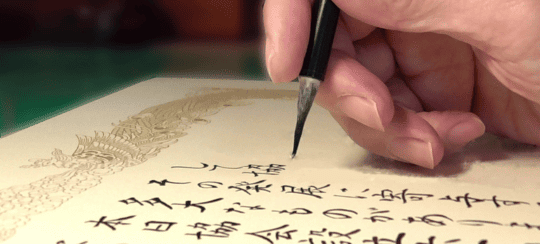 して協
その発展に寄与す
多大なものがあり
本日協会設立